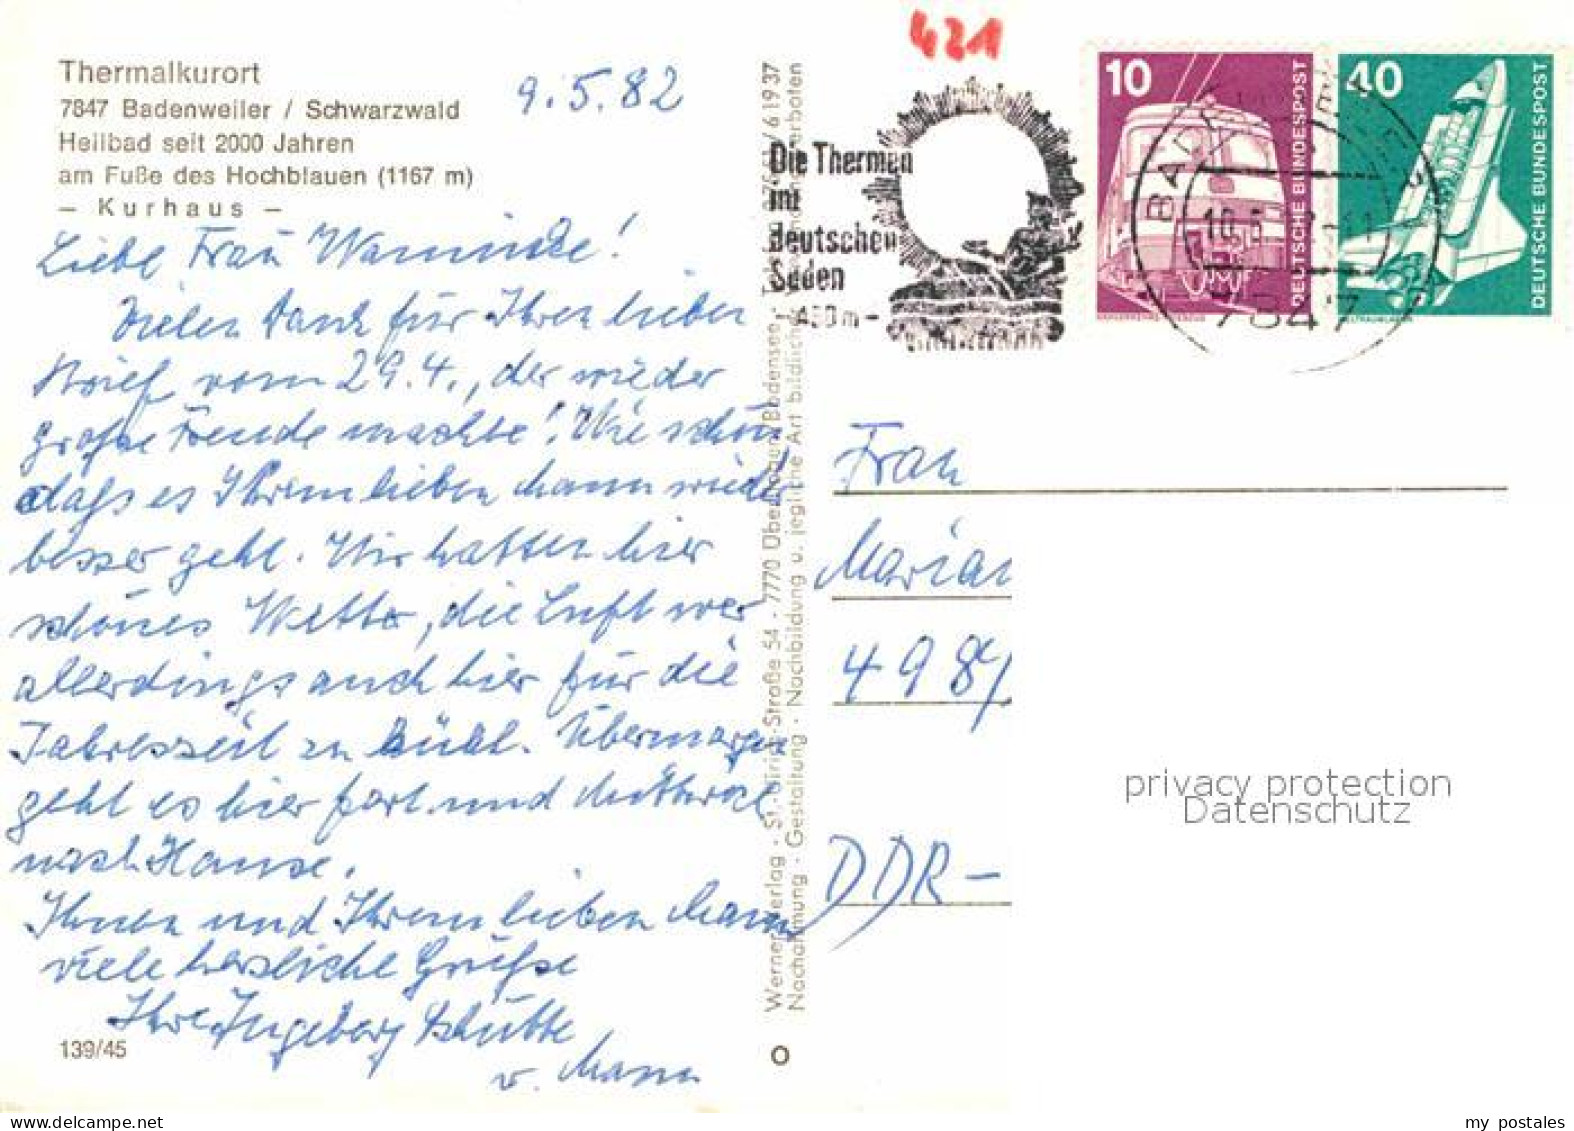 421
Thermalkurort
7847 Badenweiler / Schwarzwald
Heilbad seit 2000 Jahren
am Fuße des Hochblauen (1167 m)
– Kurhaus –
9.5.82
Liebe Frau Warnicke!
Vielen Dank für Ihren lieben
Brief vom 29.4., der wieder
große Freude machte! Wie schön,
daß es Ihrem lieben Mann wieder
besser geht. Wir hatten hier
schönes Wetter, die Luft war
allerdings auch hier für die
Jahreszeit zu kühl. Übermorgen
geht es hier fort und Mittwoch
nach Hause.
Ihnen und Ihrem lieben Mann
viele herzliche Grüße
Ihre Ingeborg Schütte
u. Mann
139/45
Werner Verlag · St.-Ulrich-Straße 54 · 7770 Überlingen/Bodensee
Nachahmung · Gestaltung · Nachbildung u. jegliche Art bildlicher
verboten
61937
Die Thermen
im
deutschen
Süden
450 m –
10
DEUTSCHE BUNDESPOST
40
DEUTSCHE BUNDESPOST
7847
Frau
Marian
498
DDR–
privacy protection
Datenschutz
my postales